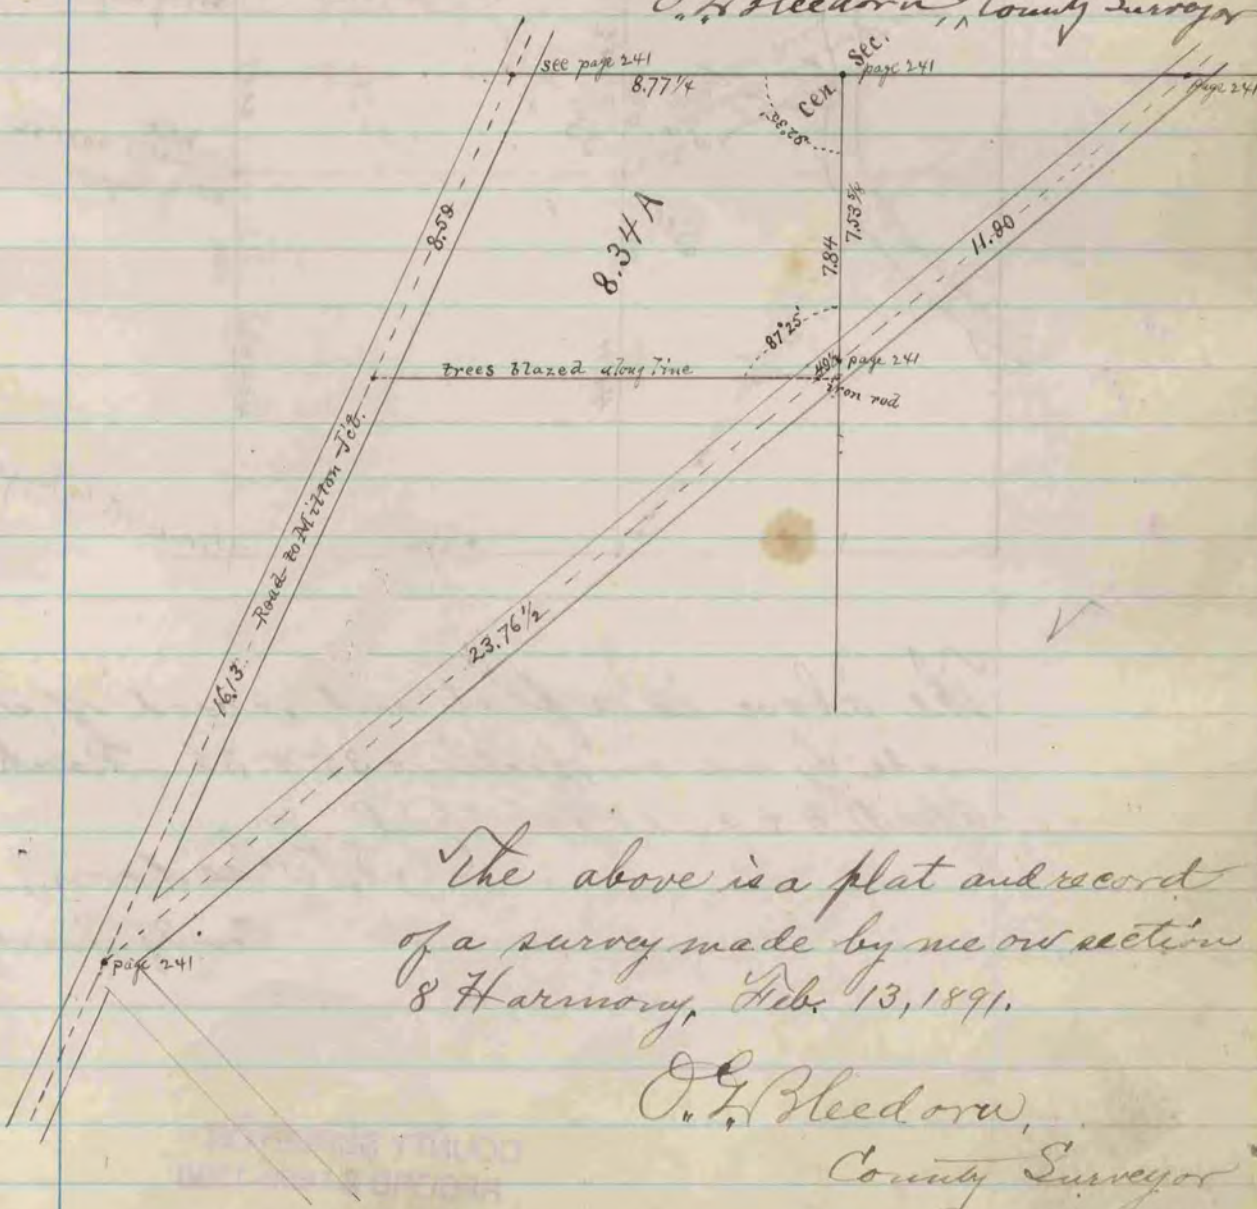 County Surveyor
see page 241
8.77 1/4
Cen Sec.
page 241
page 241
92°30'
8.59
8.34 A
7.84
7.53 3/4
11.90
87°25'
trees blazed along line
49 1/2
page 241
iron rod
Road to Milton Jct.
23.76 1/2
16.13
page 241
The above is a plat and record
of a survey made by me on section
8 Harmony, Feb. 13, 1891.
O. G. Bleedorn,
County Surveyor